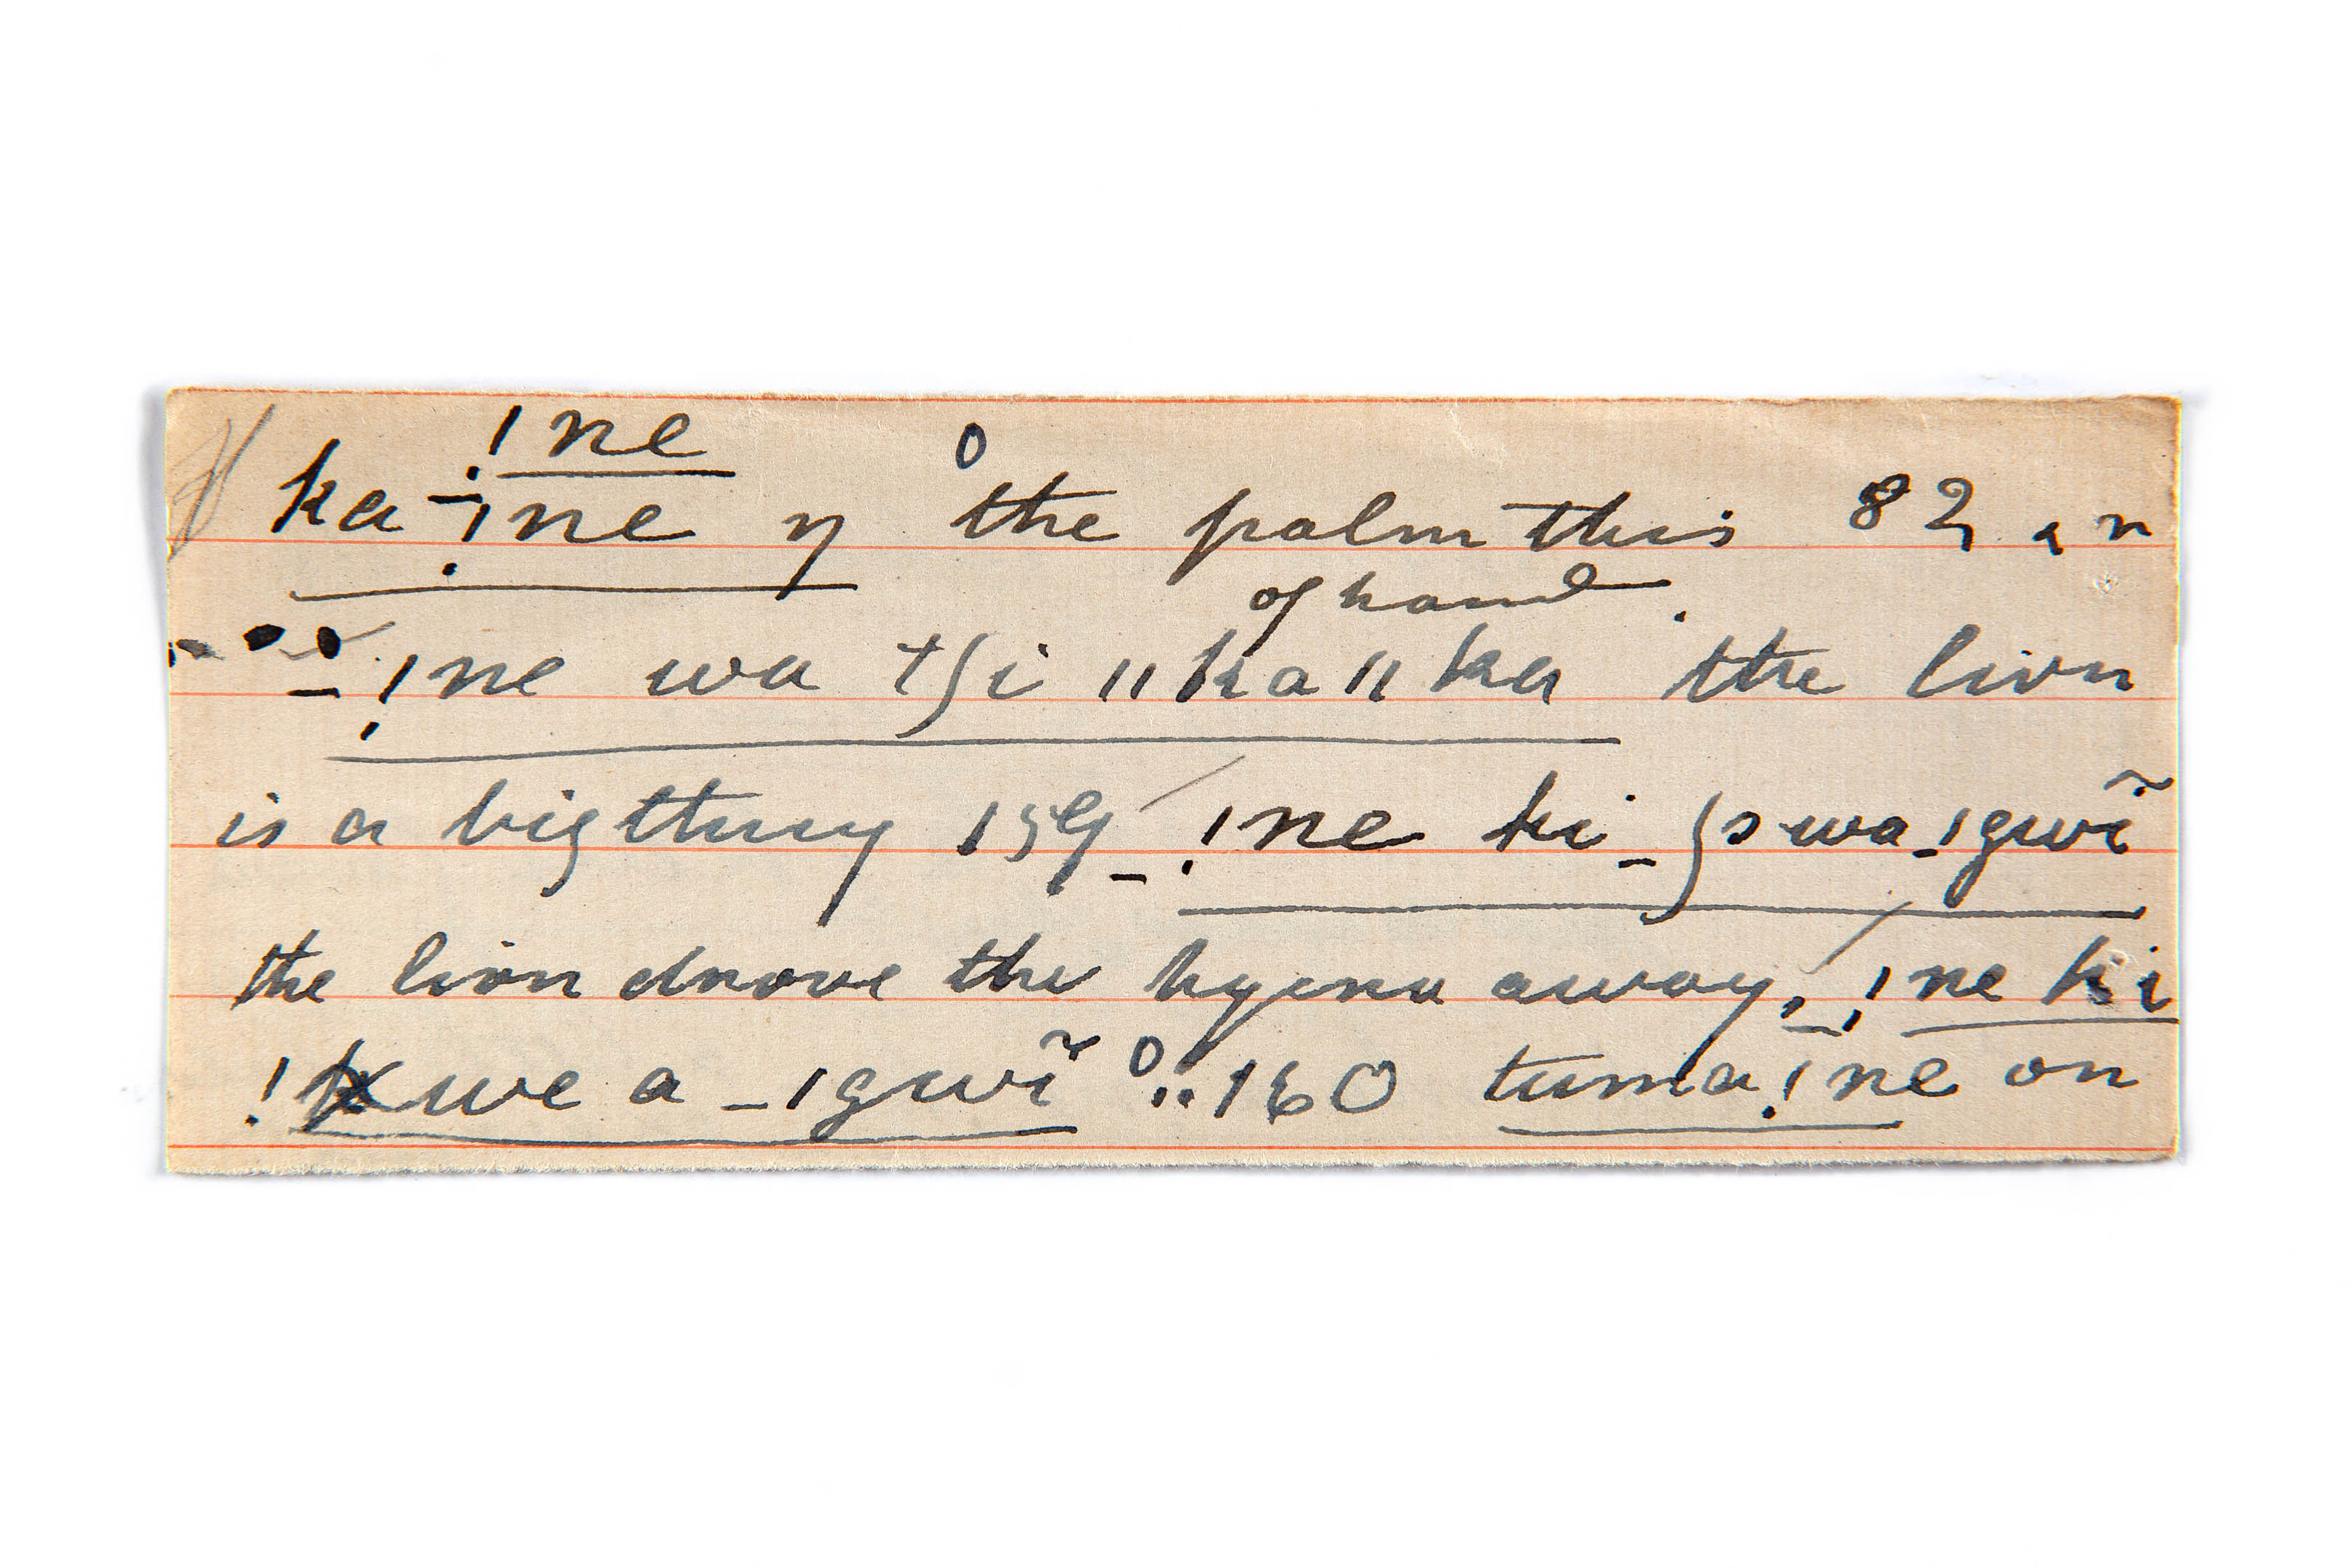 !ne
ka-!ne ŋ the palm this 82
of hand.
-!ne wa tʃi ǁkaǁka the lion
is a big thing 159 -!ne ki-ʃɔwa-ǀgwĩ
the lion drove the hyena away, -!ne ki
!kwe a -ǀgwĩ 160 tuma!ne on